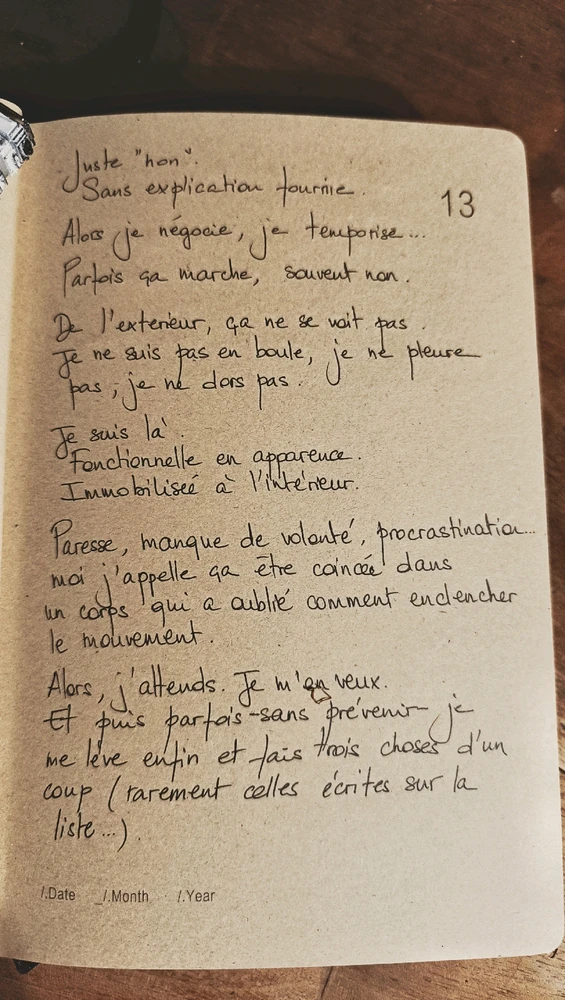 Juste "non".
Sans explication fournie.
13
Alors je négocie, je temporise...
Parfois ça marche, souvent non.
De l'exterieur, ça ne se voit pas.
Je ne suis pas en boule, je ne pleure
pas, je ne dors pas.
Je suis là.
Fonctionnelle en apparence.
Immobiliseé à l'intérieur.
Paresse, manque de volonté, procrastination...
moi j'appelle ça être coincée dans
un corps qui a oublié comment enclencher
le mouvement.
Alors, j'attends. Je m'en veux.
Et puis parfois-sans prévenir-je
me lève enfin et fais trois choses d'un
coup (rarement celles écrites sur la
liste...).
/.Date _/.Month /.Year